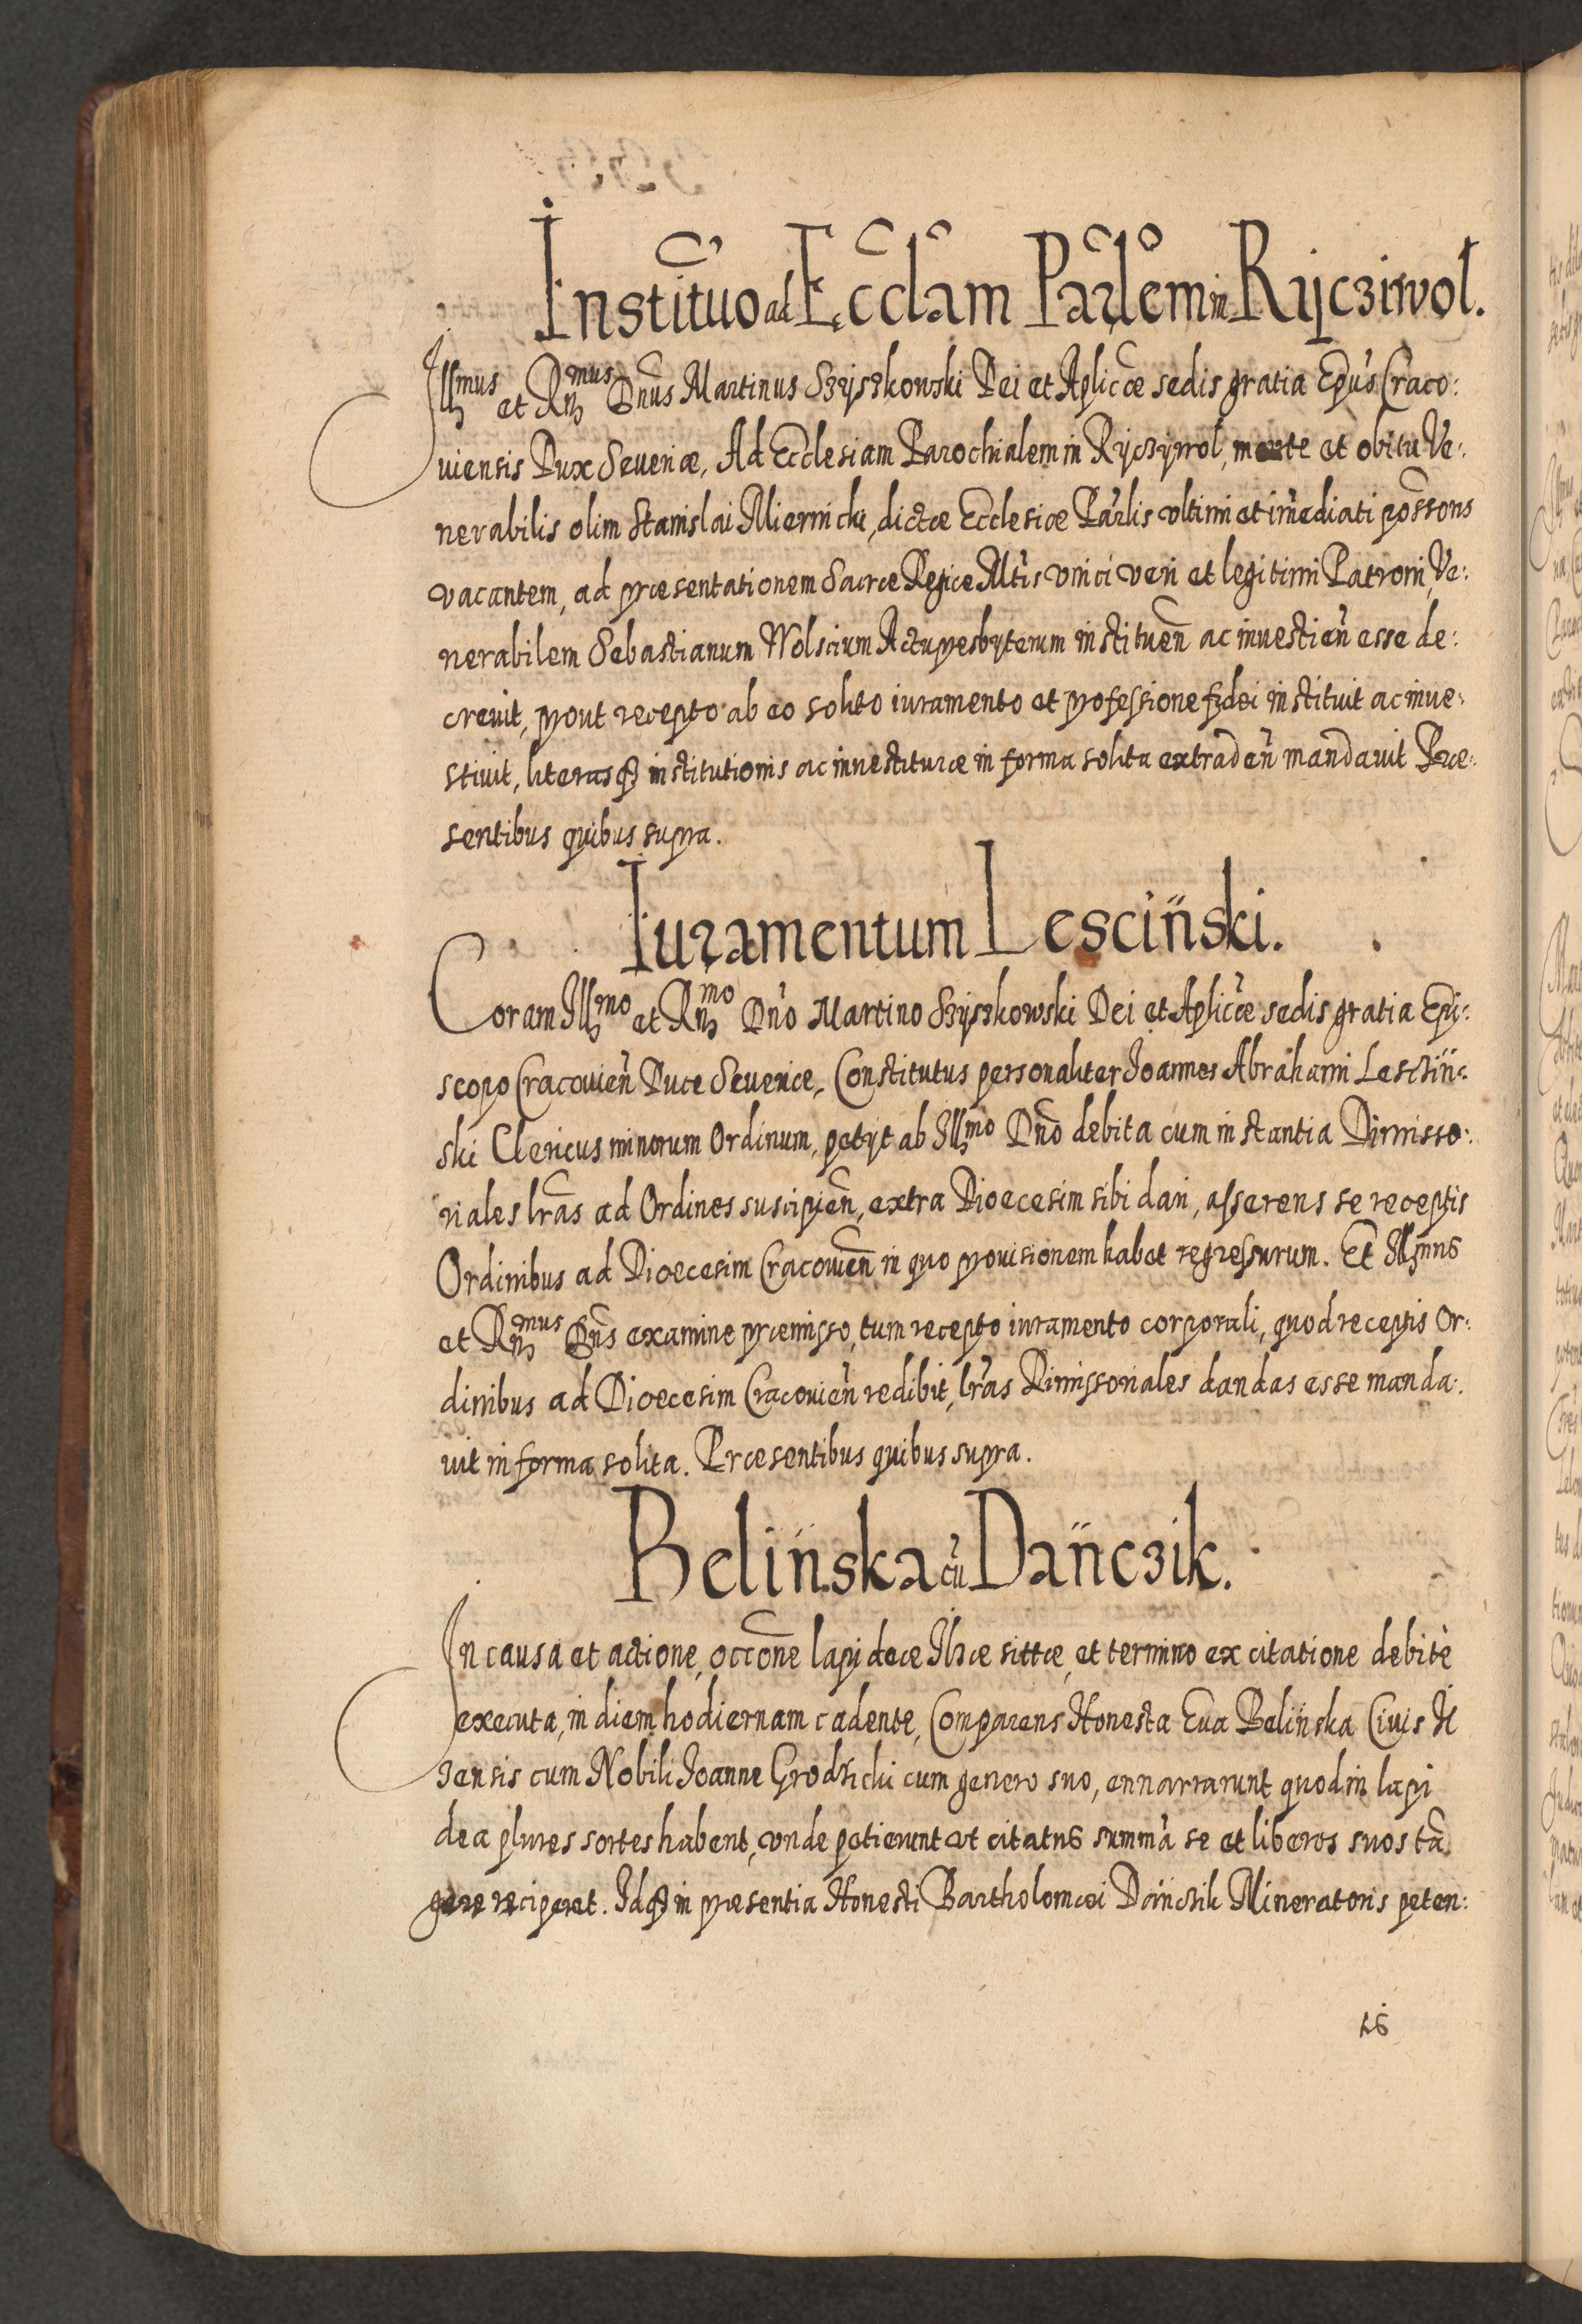 Institutio ad Eccliam Parlem in Ryczivol.
Illmus et Rndmus Dnus Martinus Szyszkowski Dei et Aplicæ sedis gratia Epus Craco:
uiensis Dux Seueriæ, Ad Ecclesiam Parochialem in Ryczywol, morte et obitu Ve:
nerabilis olim Stanislai Miernicki, dictæ Ecclesiæ Parlis vltimi et imediati possons
vacantem, ad præsentationem Sacræ Regiæ Mtis vnici veri et legitimi Patroni, Ve:
nerabilem Sebastianum Wolscium Actu presbyterum instituen ac inuestien esse de:
creuit, prout recepto ab eo solito iuramento et professione fidei instituit ac inue:
stiuit, literasq institutionis ac inuestituræ in forma solita extraden mandauit Præ:
sentibus quibus supra.
Iuramentum Lescinski.
Coram Illmo et Rndmo Dno Martino Szyszkowski Dei et Aplicæ sedis gratia Epi:
scopo Cracouien Duce Seueriæ, Constitutus personaliter Joannes Abrahami Lesczin:
ski Clericus minorum Ordinum, petyt ab Illmo Dno debita cum instantia Dimisso:
riales lras ad Ordines suscipien, extra Dioecesim sibi dari, asserens se receptis
Ordinibus ad Dioecesim Cracouien in quo prouisionem habet regressurum. Et Illmus
et Rndmus Dns examine præmisso, tum recepto iuramento corporali, quod receptis Or:
dinibus ad Dioecesim Cracouien redibit, lras Dimissoriales dandas esse manda:
uit in forma solita. Præsentibus quibus supra.
Belinska cu Danczik.
In causa et actione, occone lapideæ Ilzæ sittæ, et termino ex citatione debitè
executa, in diem hodiernam cadente, Comparens Honesta Eua Belinska Ciuis Il
zensis cum Nobili Joanne Grodzicki cum genero suo, ennarrarunt quod in lapi
dea plures sortes habent, vnde petierunt vt citatus summa se et liberos suos tã
gere reciperet. Idq in præsentia Honesti Bartholomæi Danczik Mineratoris peten: